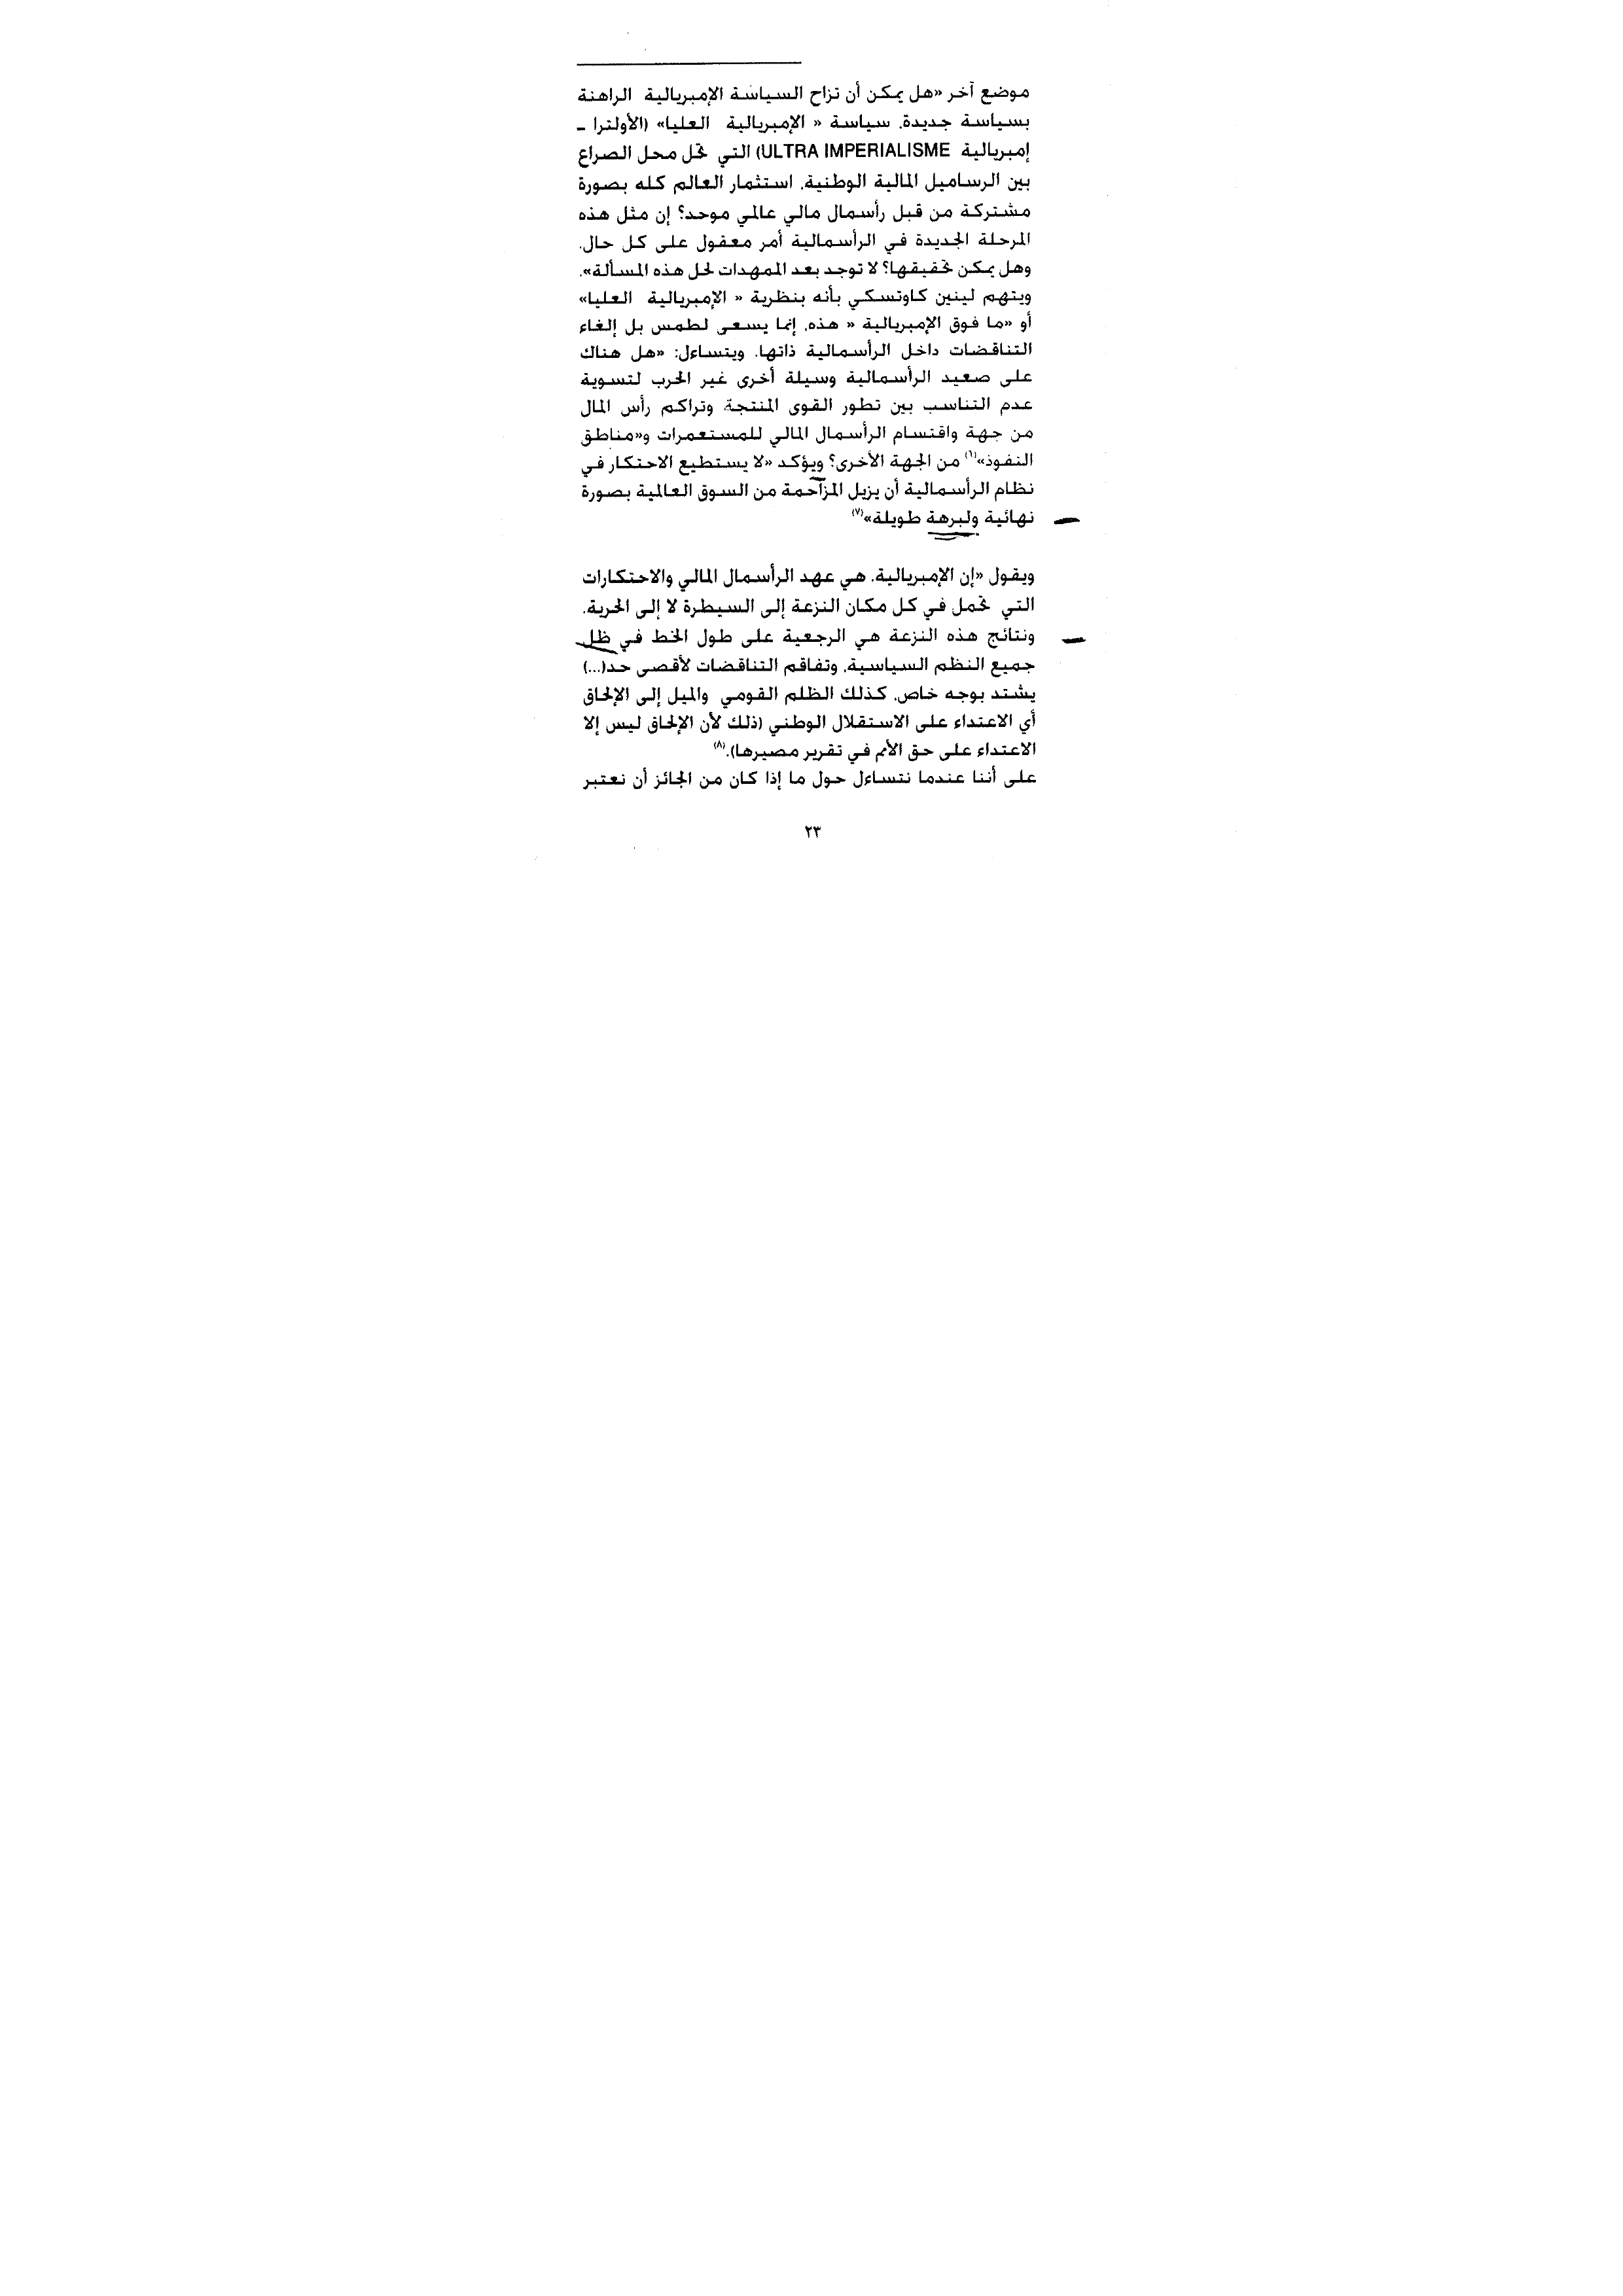 موضع آخر «هل يمكن أن تزاح السياسة الإمبريالية الراهنة
بسياسة جديدة، سياسة « الإمبريالية العليا» (الأولترا ـ
إمبريالية ULTRA IMPERIALISME) التي تحل محل الصراع
بين الرساميل المالية الوطنية، استثمار العالم كله بصورة
مشتركة من قبل رأسمال مالي عالمي موحد؟ إن مثل هذه
المرحلة الجديدة في الرأسمالية أمر معقول على كل حال.
وهل يمكن تحقيقها؟ لا توجد بعد الممهدات لحل هذه المسألة».
ويتهم لينين كاوتسكي بأنه بنظرية « الإمبريالية العليا»
أو «ما فوق الإمبريالية « هذه، إنما يسعى لطمس بل إلغاء
التناقضات داخل الرأسمالية ذاتها. ويتساءل: «هل هناك
على صعيد الرأسمالية وسيلة أخرى غير الحرب لتسوية
عدم التناسب بين تطور القوى المنتجة وتراكم رأس المال
من جهة واقتسام الرأسمال المالي للمستعمرات و«مناطق
النفوذ»(٦) من الجهة الأخرى؟ ويؤكد «لا يستطيع الاحتكار في
نظام الرأسمالية أن يزيل المزاحمة من السوق العالمية بصورة
نهائية ولبرهة طويلة»(٧)
ويقول «إن الإمبريالية، هي عهد الرأسمال المالي والاحتكارات
التي تحمل في كل مكان النزعة إلى السيطرة لا إلى الحرية.
ونتائج هذه النزعة هي الرجعية على طول الخط في ظل
جميع النظم السياسية، وتفاقم التناقضات لأقصى حد(...)
يشتد بوجه خاص، كذلك الظلم القومي والميل إلى الإلحاق
أي الاعتداء على الاستقلال الوطني (ذلك لأن الإلحاق ليس إلا
الاعتداء على حق الأمم في تقرير مصيرها).(٨)
على أننا عندما نتساءل حول ما إذا كان من الجائز أن نعتبر
٢٣